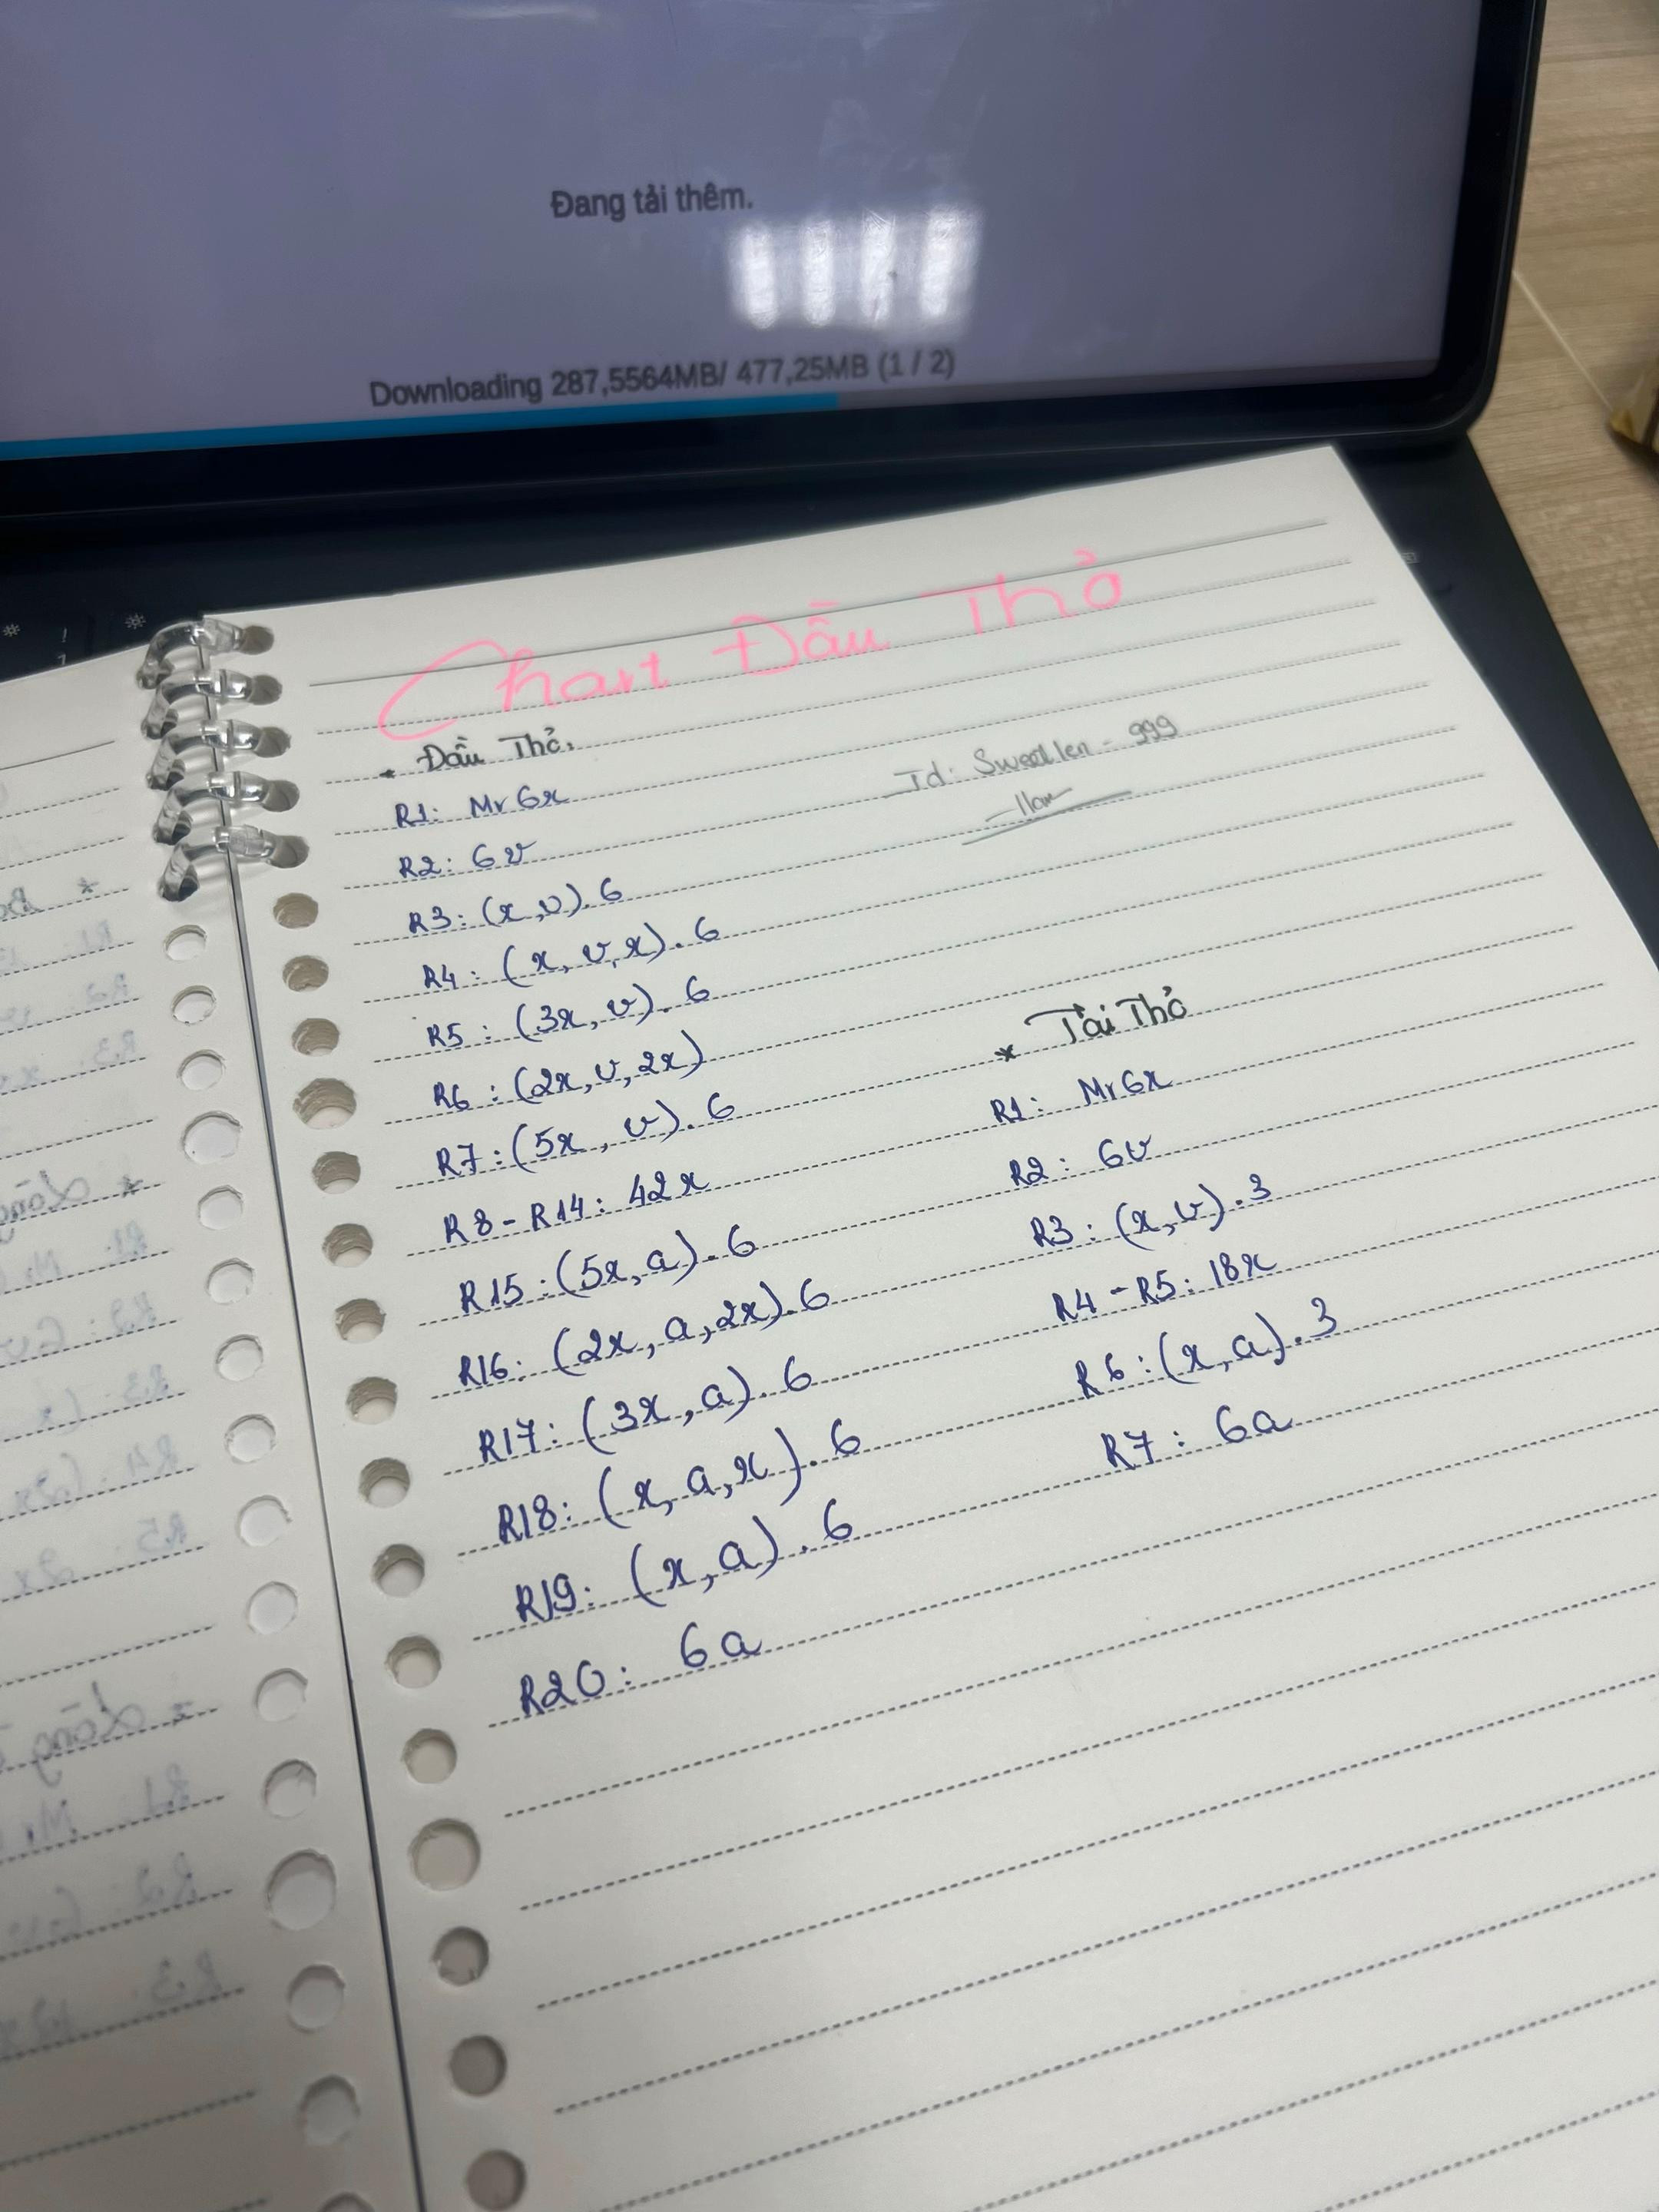 Đang tải thêm.
Downloading 287,5564MB/ 477,25MB (1 / 2)
Chart Đầu Thỏ
* Đầu Thỏ:
Id: Sweetlen - 999
R1: Mr 6x
R2: 6v
R3: (x,v).6
R4: (x, v, x).6
R5: (3x, v).6
R6: (2x, v, 2x)
R7: (5x, v).6
R8 - R14: 42x
R15: (5x, a).6
R16: (2x, a, 2x).6
R17: (3x, a).6
R18: (x, a, x).6
R19: (x, a).6
R20: 6a
* Tai Thỏ
R1: Mr 6x
R2: 6v
R3: (x, v).3
R4 - R5: 18x
R6: (x, a).3
R7: 6a